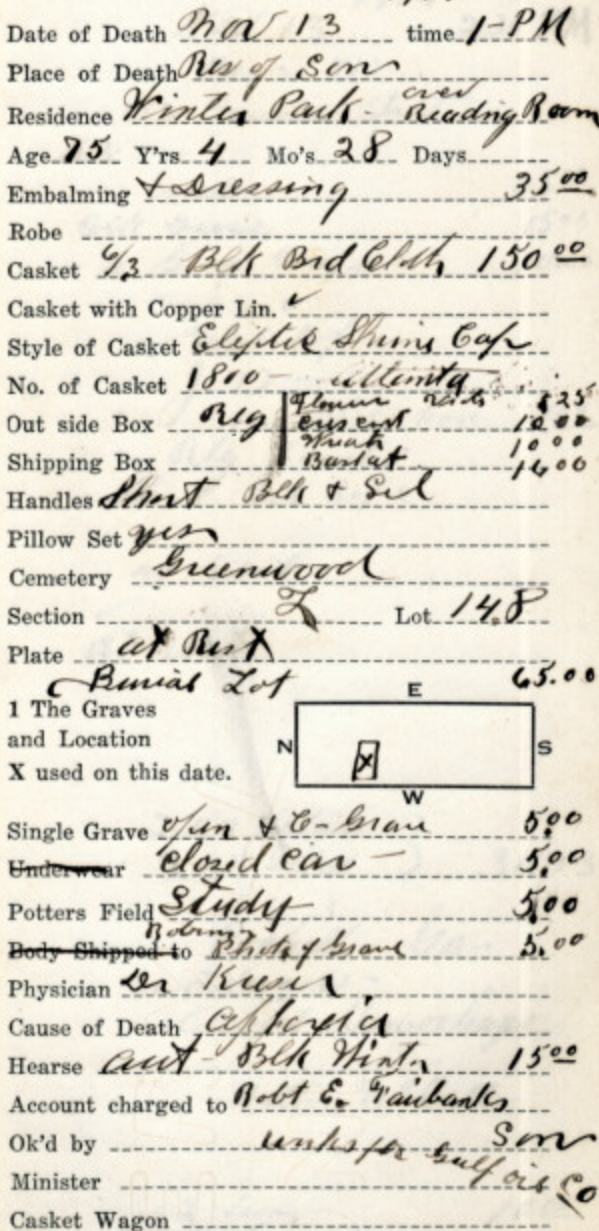 Date of Death Nov 13 time 1-PM
Place of Death Res of Son
Residence Winter Park - over Reading Room
Age 75 Y'rs 4 Mo's 28 Days
Embalming & Dressing 35 00
Robe
Casket 6/3 Blk Brd Cloth 150 00
Casket with Copper Lin. ✓
Style of Casket Eliptic Cap
No. of Casket 1800
Out side Box Reg Flower 25
Cresent 10 00
Wreath 10 00
Shipping Box Baskat 16 00
Handles Short Blk & Sil
Pillow Set yes
Cemetery Greenwood
Section Lot 148
Plate at Rest
Burial Lot 65.00
1 The Graves
and Location
X used on this date.
E
N X S
W
Single Grave open & C- Grave 5.00
Underwear closed car - 5.00
Potters Field Study 5.00
Body Shipped to Photo of Grave 5.00
Physician Dr
Cause of Death
Hearse aut - Blk Wint. 15 00
Account charged to Robt E. Fairbanks
Ok'd by Son
works for Gulf oil Co
Minister
Casket Wagon